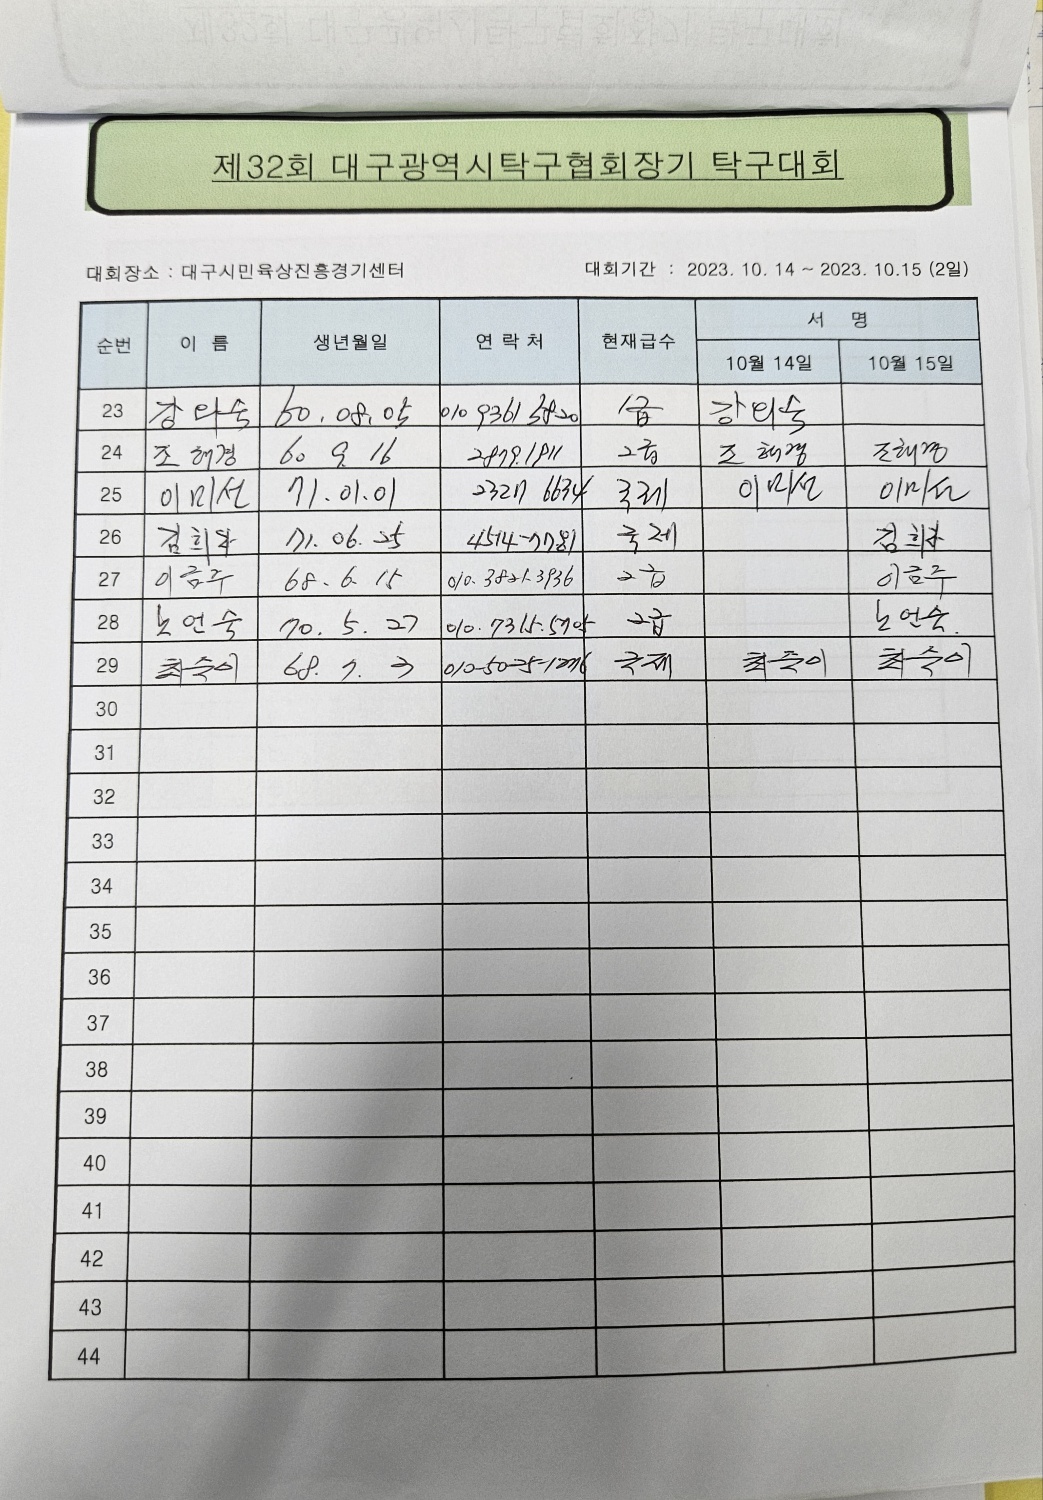 제32회 대구광역시탁구협회장기 탁구대회
대회장소 : 대구시민육상진흥경기센터 대회기간 : 2023. 10. 14 ~ 2023. 10.15 (2일)
순번 이 름 생년월일 연 락 처 현재급수 서 명
10월 14일 10월 15일
23 강 60. 08. 05 010 9361 3820 1급 강
24 조해경 60 9. 16 2879.1811 2급 조해경 조해경
25 이미선 71. 01. 01 2327 6634 국제 이미선 이미선
26 김희 71. 06. 25 4514-7781 국제 김희
27 이금주 68. 6. 15 2급 이금주
28 노연숙 70. 5. 27 010. 7315. 2급 노연숙.
29 최숙이 68. 7. 3 국제 최숙이 최숙이
30
31
32
33
34
35
36
37
38
39
40
41
42
43
44